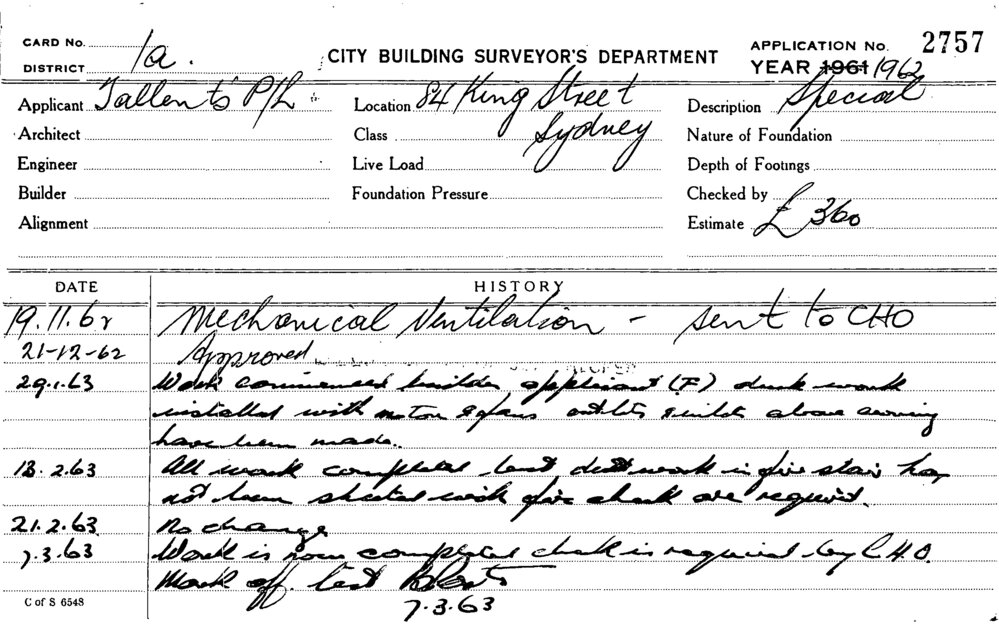 CARD No.
DISTRICT 1a.
CITY BUILDING SURVEYOR'S DEPARTMENT
APPLICATION No. 2757
YEAR 1961 1962
Applicant Tallents P/L
Location 84 King Street
Description Special
Architect
Class Sydney
Nature of Foundation
Engineer
Live Load
Depth of Footings
Builder
Foundation Pressure
Checked by
Alignment
Estimate £ 360
DATE HISTORY
19.11.62 Mechanical Ventilation - sent to CHO
21-12-62 Approved
29.1.63 Work commenced builder applicant (F) duck work
installed with motor & fans outlets & inlets above awning
have been made.
13.2.63 All work completed but duct work in fire stair has
not been sheeted with fire check are required.
21.2.63 No change
7.3.63 Work is now completed check is required by C.H.O.
Mark off card
7.3.63
C of S 6548